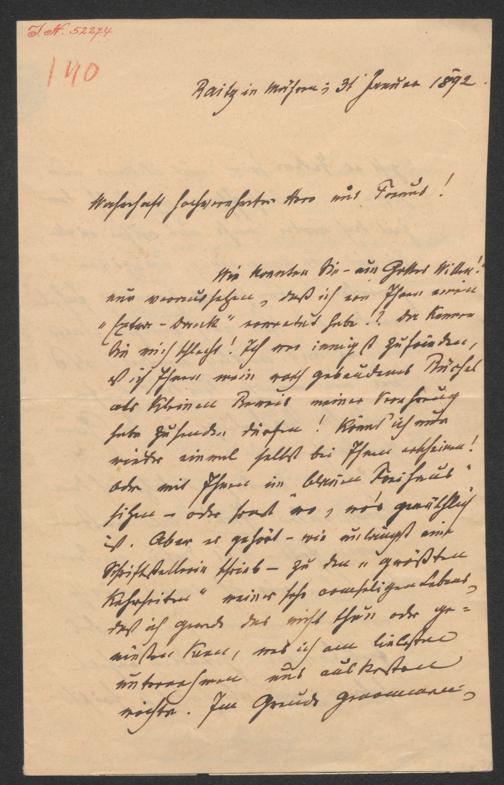 J. N. 52274
140
Raitz in Mähren, 31 Januar 1892.
Wahrhaft hochverehrter Herr und Freund!
Wie konnten Sie – um Gottes Willen!
nur voraussetzen, daß ich von Ihnen einen
"Extra-Dank" erwartet habe!? Da kennen
Sie mich schlecht! Ich war innigst zufrieden,
daß ich Ihnen mein gebundenes Büchel
als kleinen Beweis meiner Verehrung
habe zusenden dürfen! Könnt' ich nur
wieder einmal selbst bei Ihnen erscheinen!
oder mit Ihnen im blauen "Freihaus"
sitzen – oder sonst wo, wo's gemüthlich
ist. Aber es gehört – wie unlängst eine
Schriftstellerin schrieb – zu den "größten
Kahrheiten" meines sehr armseligen Lebens,
daß ich gerade das nicht thun oder ge-
nießen kann, was ich am liebsten
unternehmen und auskosten
möchte. Im Grunde genommen,